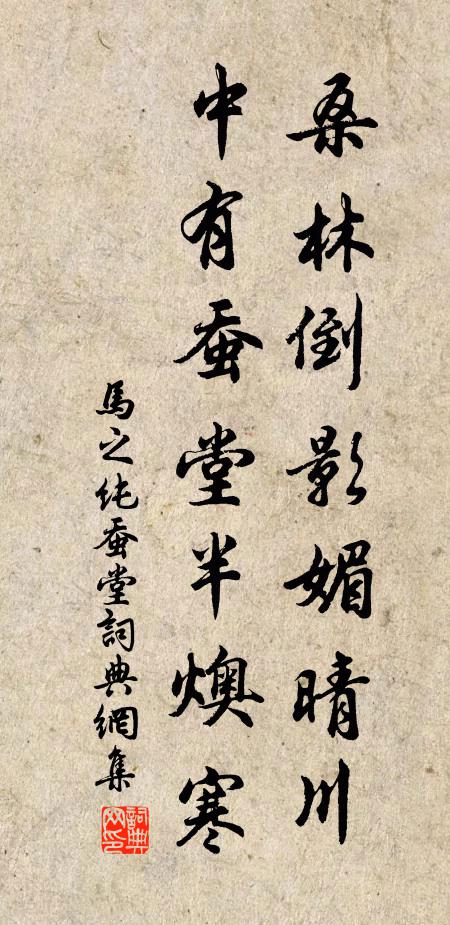 桑林倒影媚晴川
中有蚕堂半燠寒
馬之纯蚕堂詞典網集
詞典網印